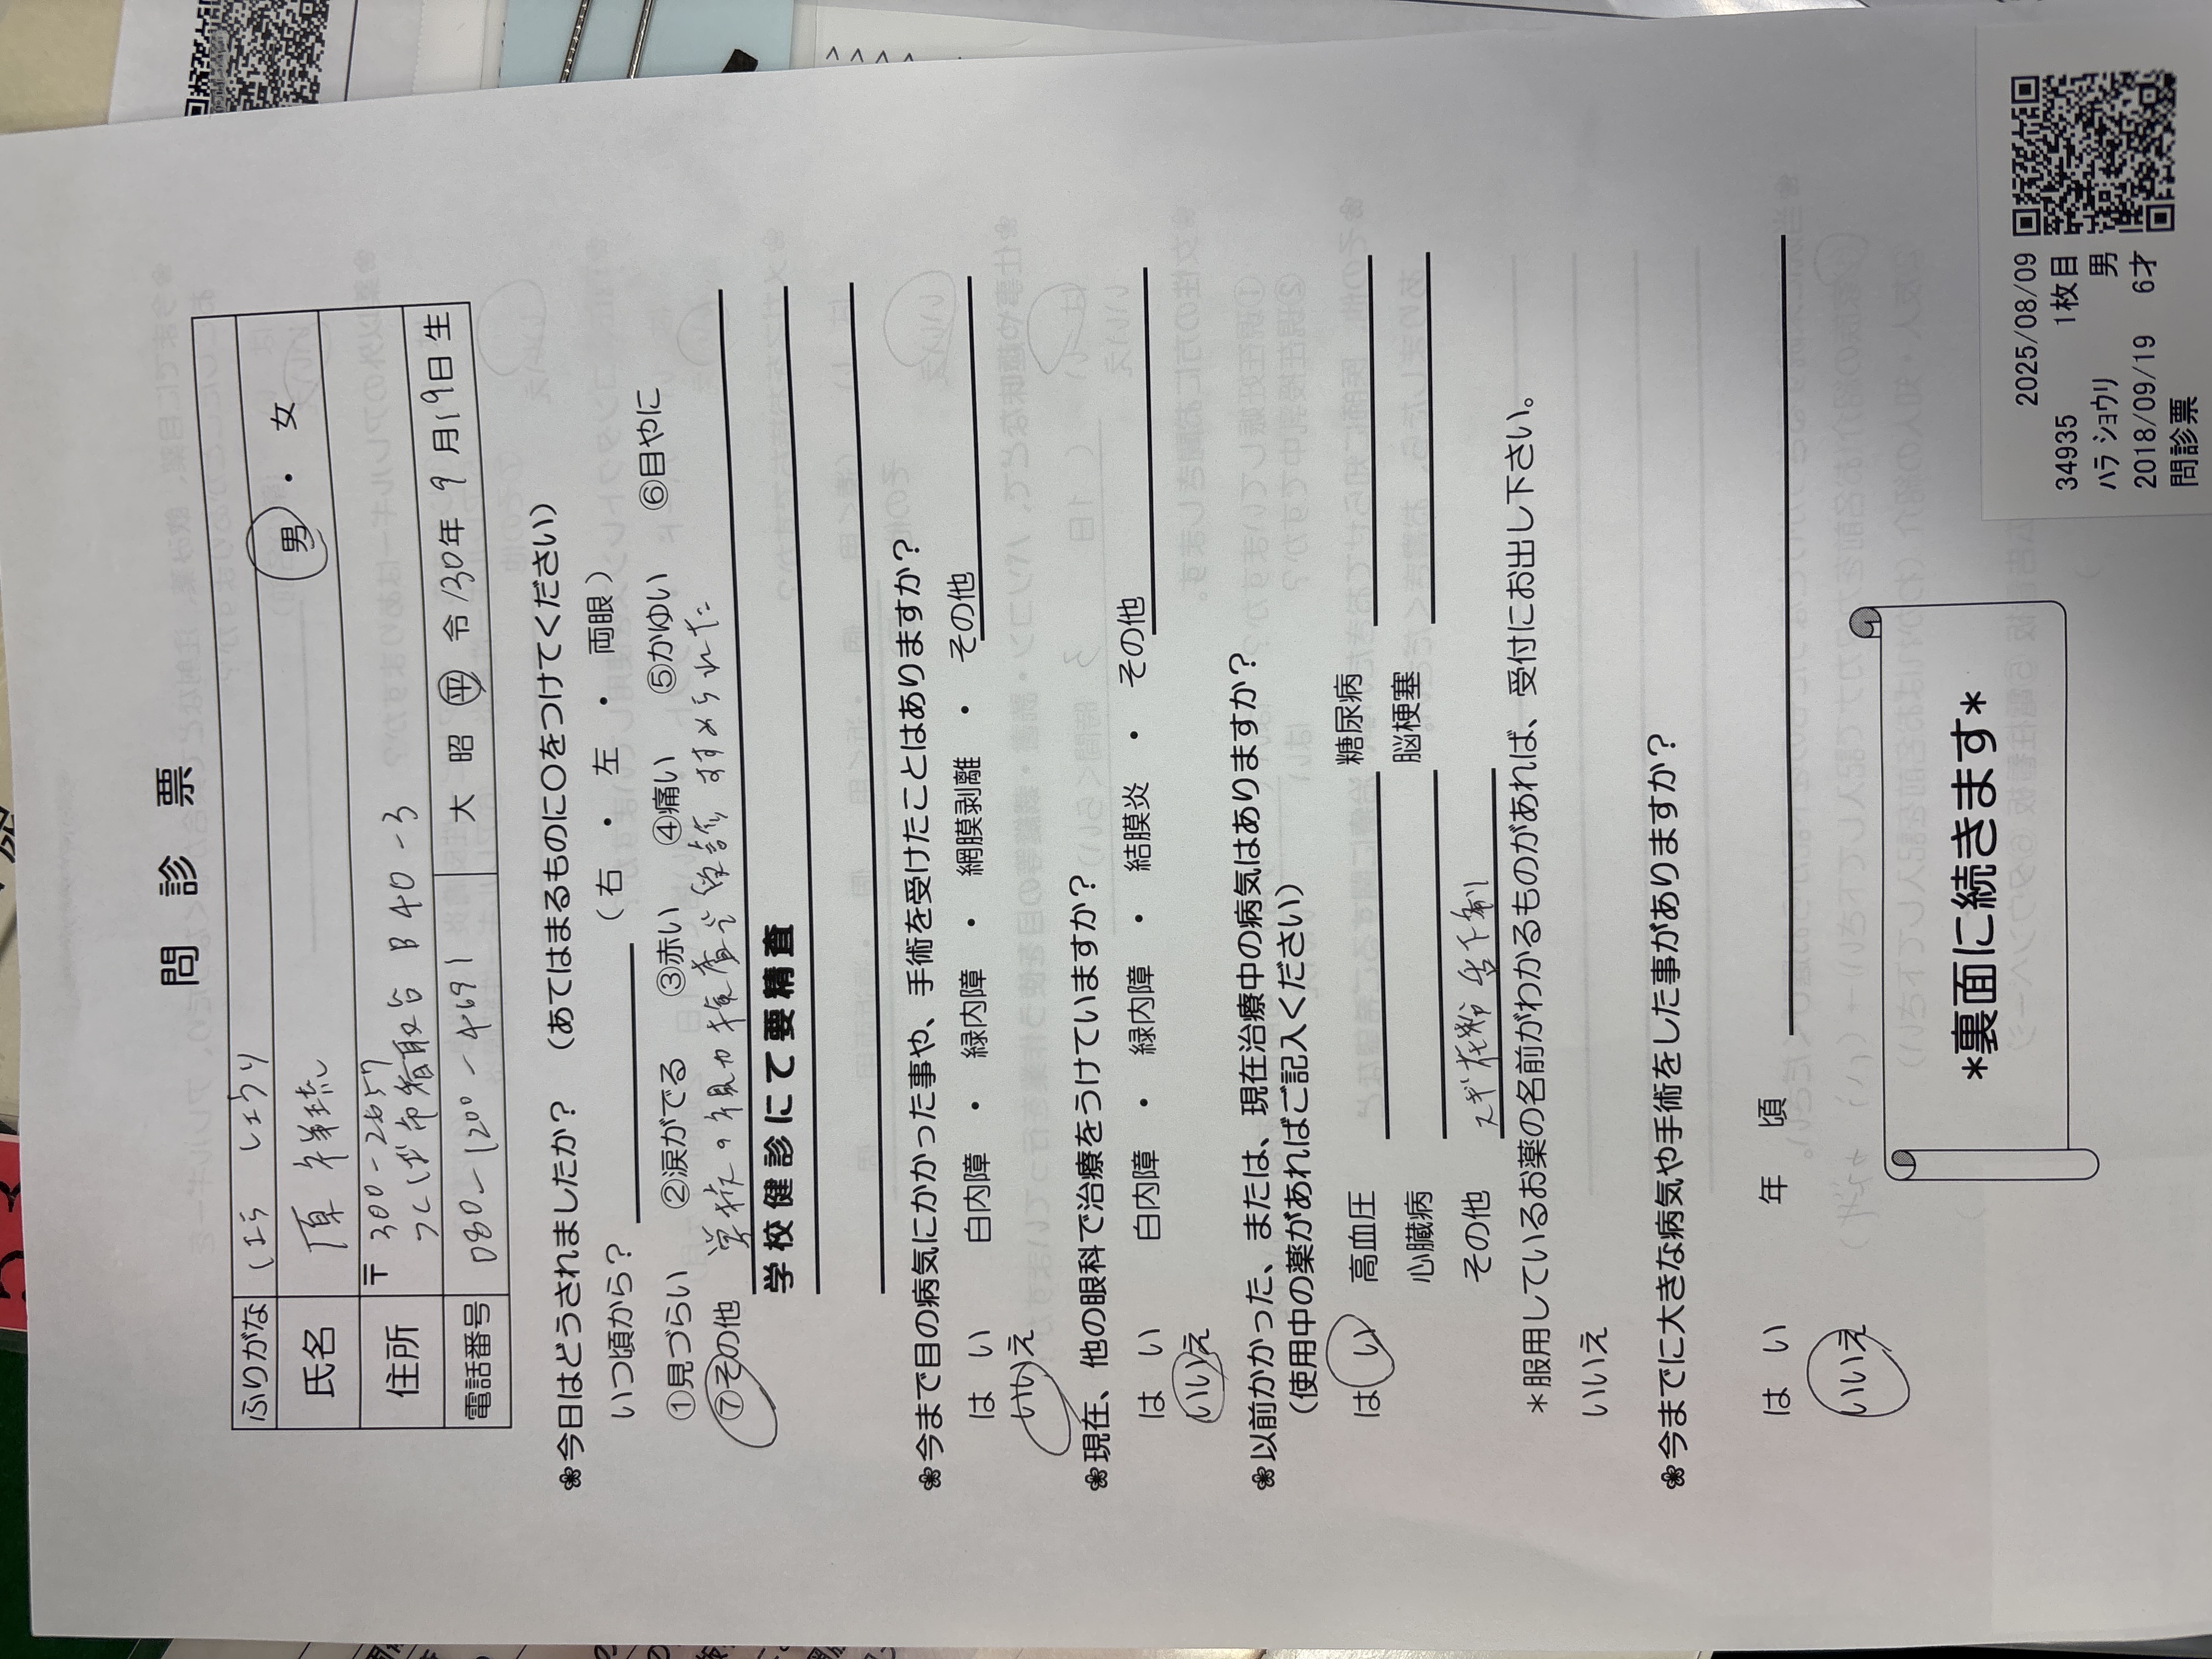 問診票
ふりがな はら しょうり
氏名 原 祥琉 男・女
住所 〒300-2657
つくば市香取台B40-3
電話番号 080-1200-4691 大 昭 平 令 30年9月19日生
❀今日はどうされましたか? (あてはまるものに〇をつけてください)
いつ頃から? (右 ・ 左 ・ 両眼)
①見づらい ②涙がでる ③赤い ④痛い ⑤かゆい ⑥目やに
⑦その他 学校の視力検査で受診すすめられた
学校健診にて要精査
❀今まで目の病気にかかった事や、手術を受けたことはありますか?
はい 白内障 ・ 緑内障 ・ 網膜剥離 ・ その他
いいえ
❀現在、他の眼科で治療をうけていますか?
はい 白内障 ・ 緑内障 ・ 結膜炎 ・ その他
いいえ
❀以前かかった、または、現在治療中の病気はありますか?
(使用中の薬があればご記入ください)
はい 高血圧 糖尿病
心臓病 脳梗塞
その他 スギ花粉 舌下剤
*服用しているお薬の名前がわかるものがあれば、受付にお出し下さい。
いいえ
❀今までに大きな病気や手術をした事がありますか?
はい 年 頃
いいえ
*裏面に続きます*
2025/08/09
34935 1枚目
ﾊﾗ ｼｮｳﾘ 男
2018/09/19 6才
問診票